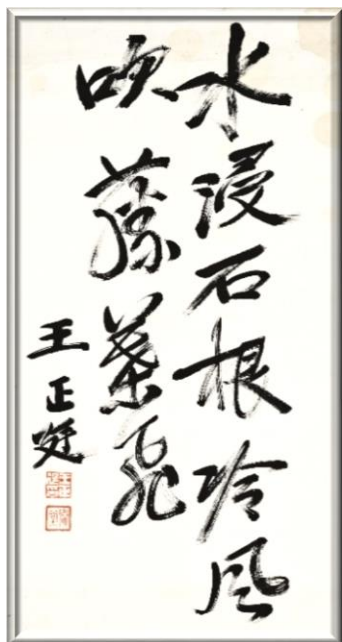 水浸石根冷風
吹藤葉飛
王正廷